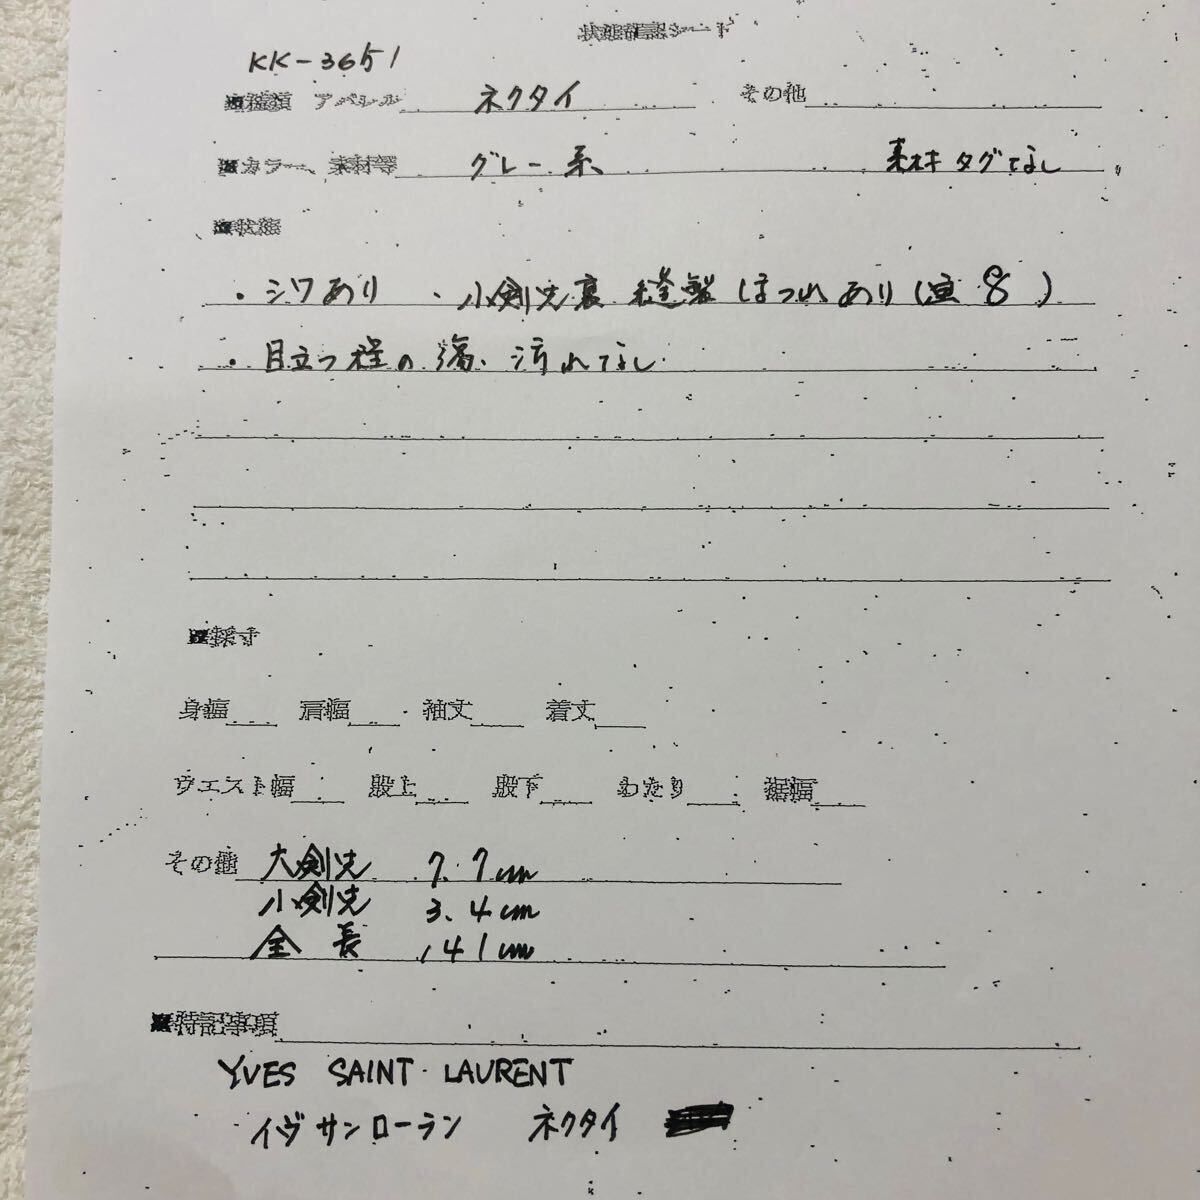 状態確認シート
KK-3651
■種類 アパレル ネクタイ その他
■カラー、素材等 グレー系、 素材タグなし
■状態
・シワあり ・小剣先裏 縫製ほつれあり( 8 )
・目立つ程の傷、汚れなし
■採寸
身幅 肩幅 袖丈 着丈
ウエスト幅 股上 股下 わたり 裾幅
その他 大剣先 7.7cm
小剣先 3.4cm
全長 141cm
■特記事項
YVES SAINT LAURENT
イヴサンローラン ネクタイ